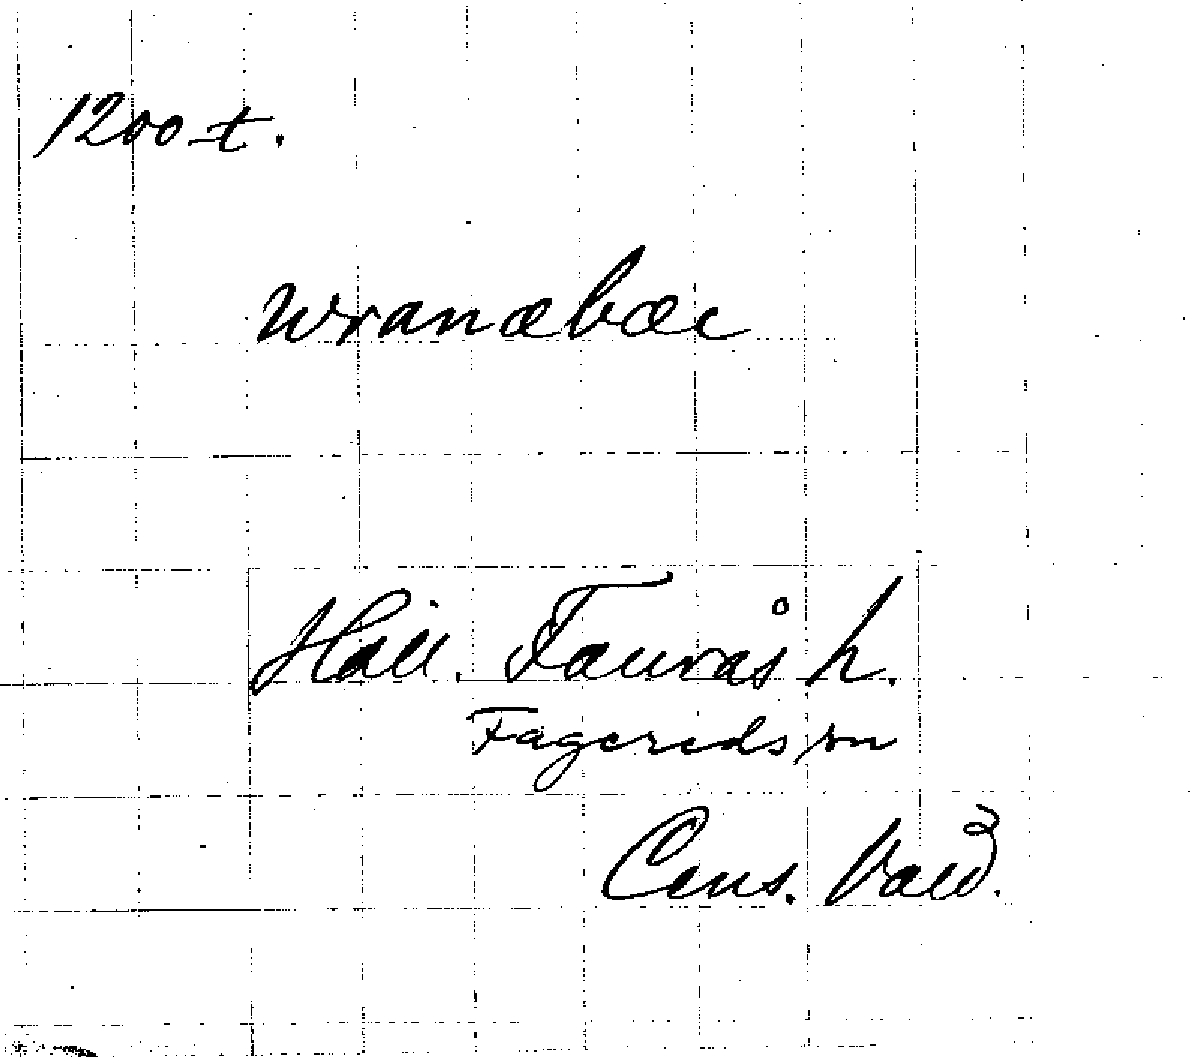 1200-t.
wranæbæc
Hall. Faurås h.
Fageredssn
Cens. Vald.